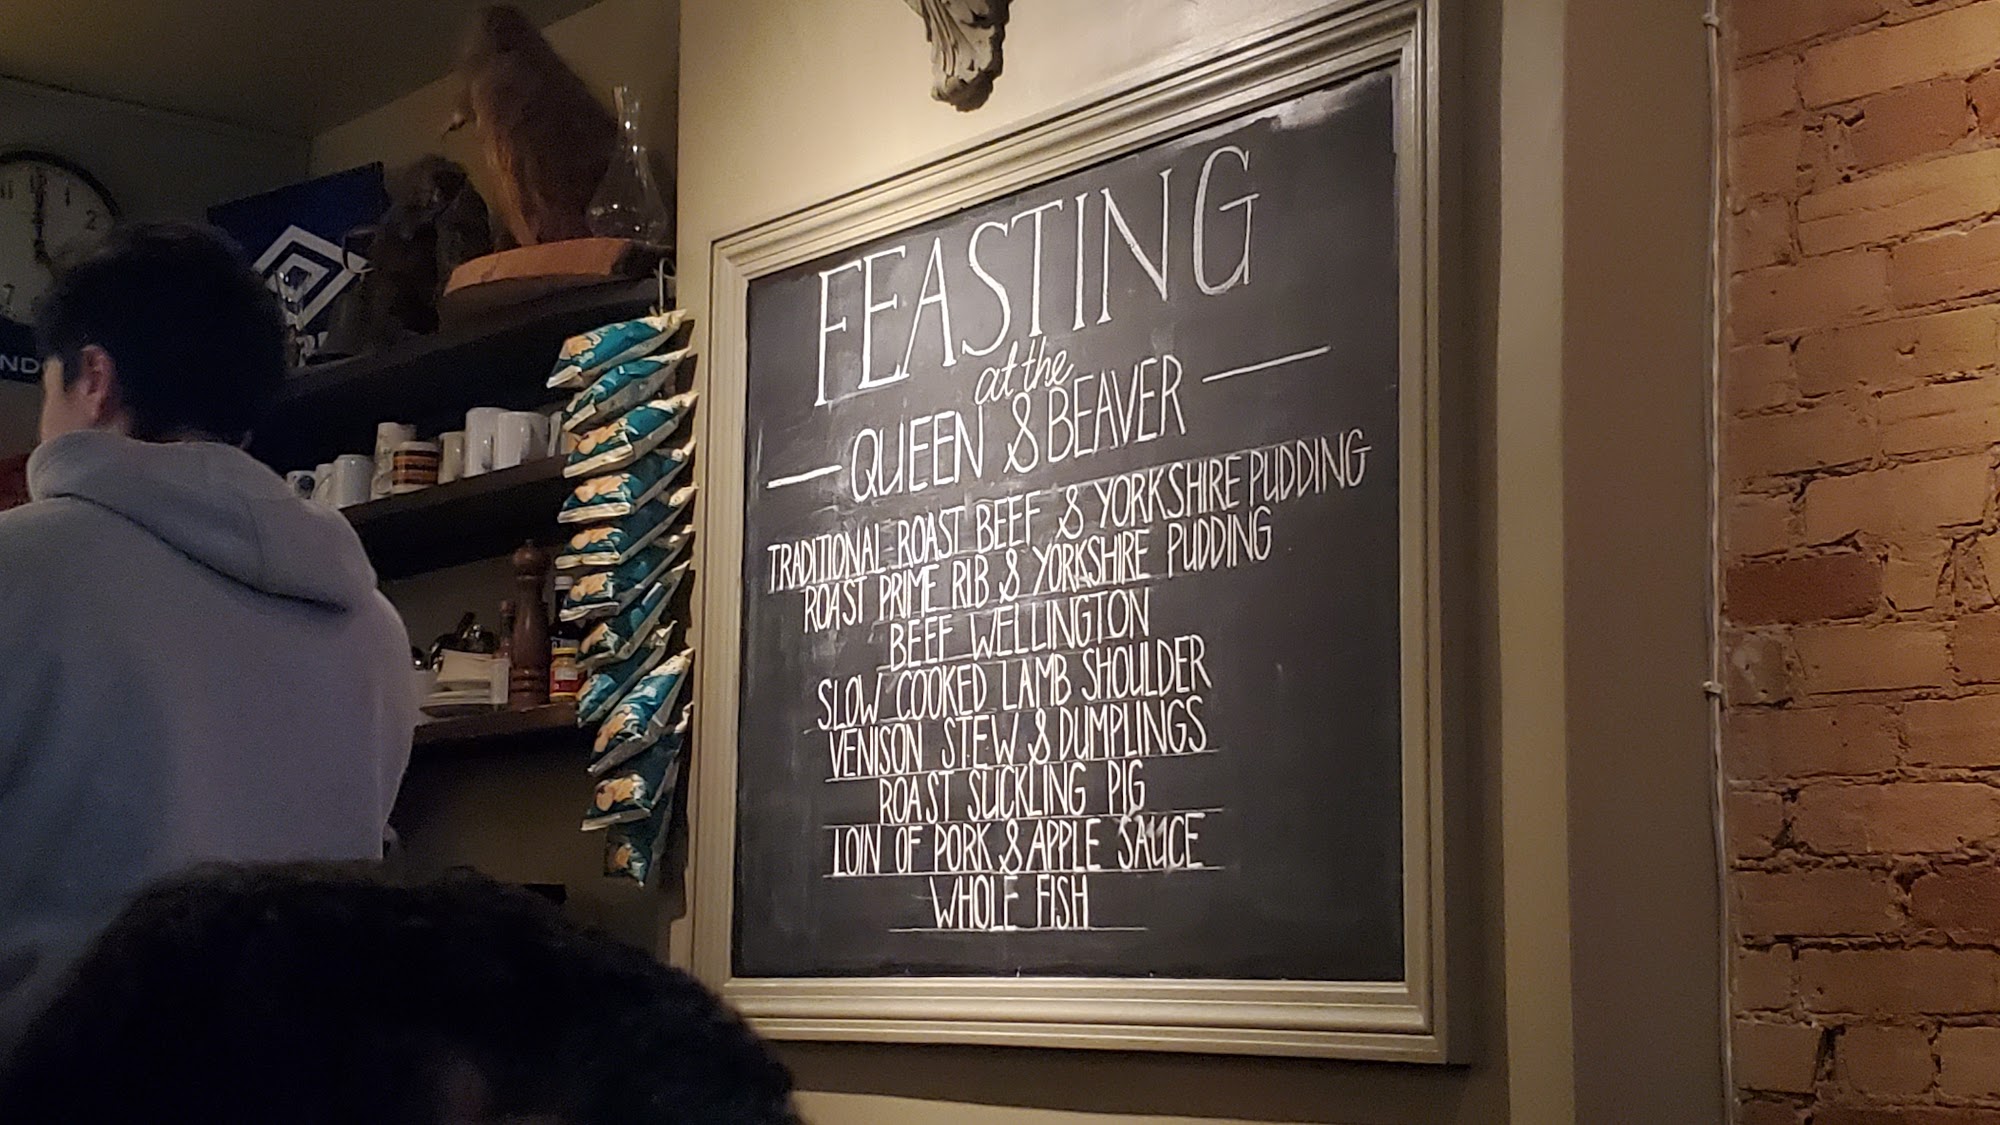 FEASTING
at the
QUEEN & BEAVER
TRADITIONAL ROAST BEEF & YORKSHIRE PUDDING
ROAST PRIME RIB & YORKSHIRE PUDDING
BEEF WELLINGTON
SLOW COOKED LAMB SHOULDER
VENISON STEW & DUMPLINGS
ROAST SUCKLING PIG
LOIN OF PORK & APPLE SAUCE
WHOLE FISH